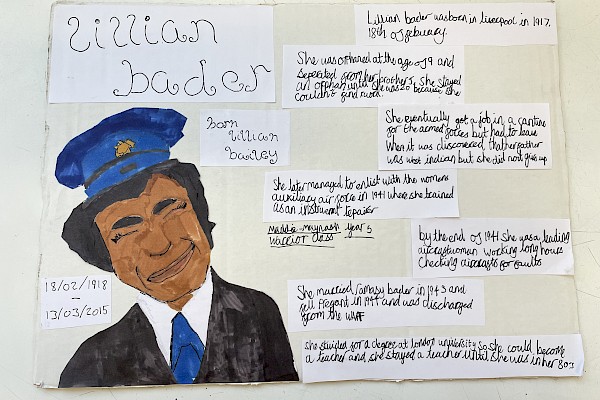 Lillian
bader
Lillian bader was born in liverpool in 1917.
18th of febuary.
She was orphaned at the age of 9 and
seperated from her brothers, she stayed
an orphan until she was 20 because she
couldn't find work.
born
Lillian
bailey
She eventually got a job in a cantine
for the armed forces but had to leave
When it was discovered that her father
was west indian but she did not give up
She later managed to enlist with the womens
auxiliary air force in 1941 where she trained
as an instrument repairer
Maddie Maynash year 5
WARRIOT class
by the end of 1941 she was a leading
aircraftwoman working long hours
Checking aircrafts for faults
18/02/1918
-
13/03/2015
She married ramsay bader in 1943 and
fell pregent in 1944 and was discharged
from the WAAF
she studied for a degree at london university so she could become
a teacher and she stayed a teacher until she was in her 80s